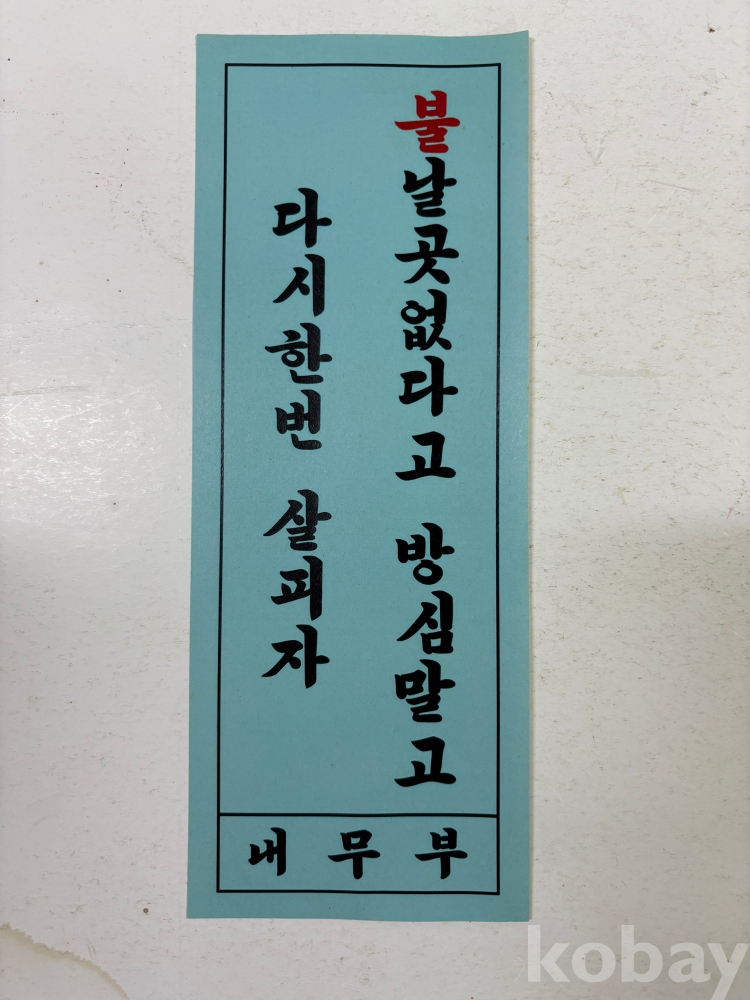 불날곳없다고 방심말고
다시한번 살피자
내무부
kobay